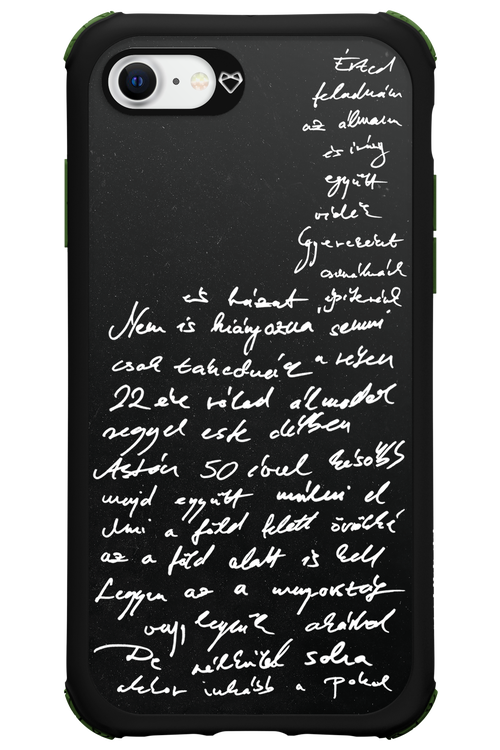 Érted
feladnám
az álmaim
és így
együtt
Gyerekeket
csinálnánk
és házat építenénk
Nem is hiányozna semmi
csak
22 éve rólad álmodok
reggel este délben
Aztán 50 évvel később
majd együtt múlni el
Ami a föld felett örökké
az a föld alatt is kell
Legyen az a mennyország
vagy legyünk akárhol
De nélküled soha
akkor inkább a Pokol